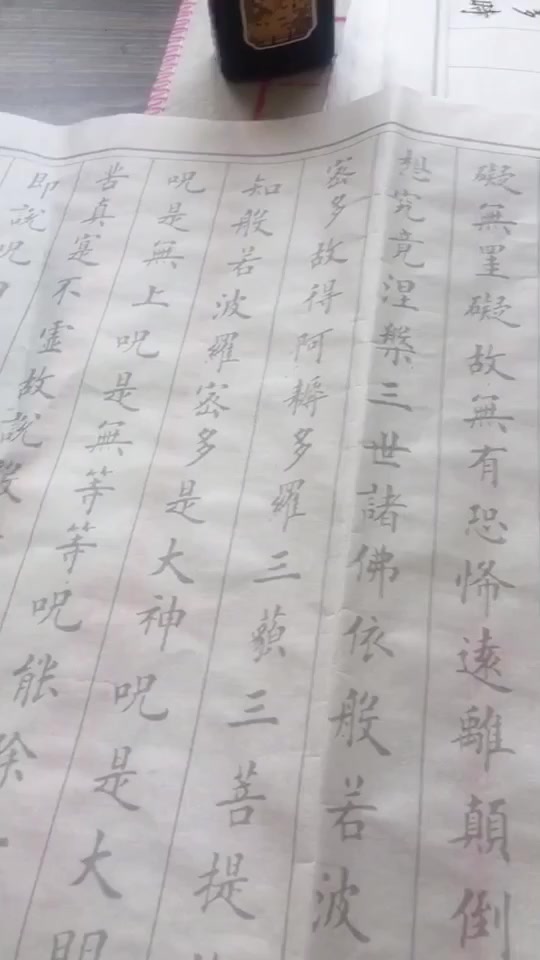 礙無罣礙故無有恐怖遠離顛倒
想究竟涅槃三世諸佛依般若波
密多故得阿耨多羅三藐三菩提
知般若波羅密多是大神呪是大明
呪是無上呪是無等等呪能除
苦真寔不虛故說般
即說呪曰